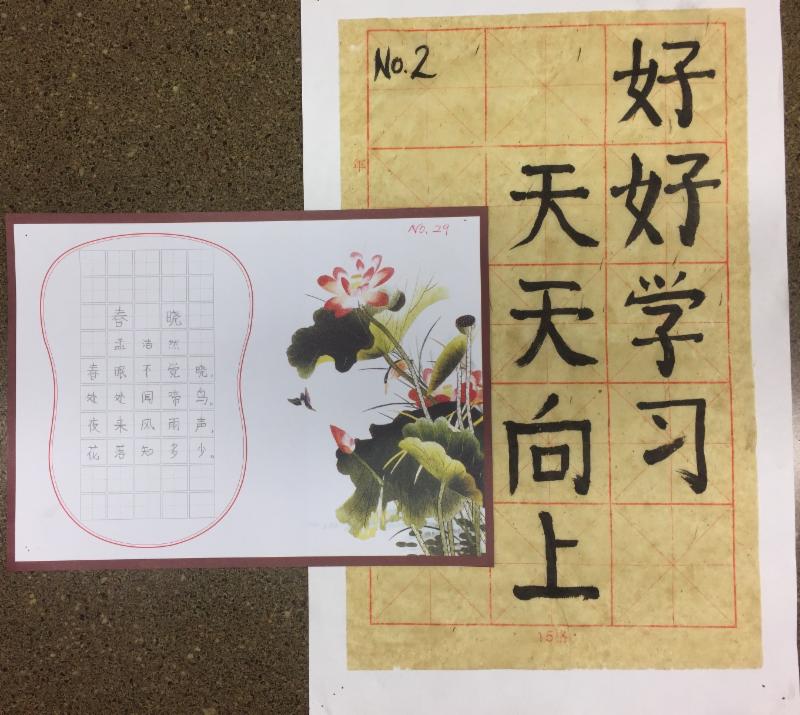 NO. 29
春晓
孟浩然
春眠不觉晓。
处处闻啼鸟。
夜来风雨声，
花落知多少。
No.2
好好学习
天天向上
年